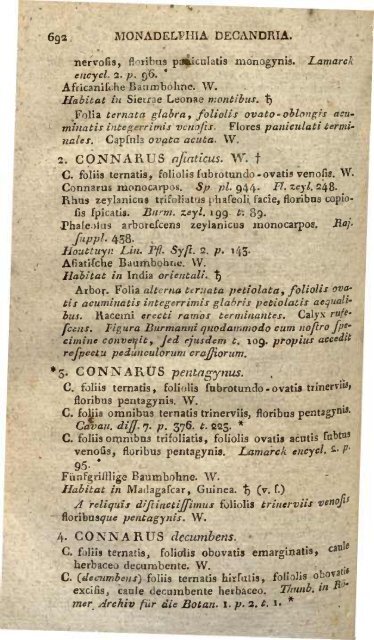 692 MONADELPHIA DECANDRIA.
nervosis, floribus paniculatis monogynis. Lamarck
encycl. 2. p. 96. *
Africanische Baumbohne. W.
Habitat in Sierrae Leonae montibus. ♄
Folia ternata glabra, foliolis ovato-oblongis acu-
minatis integerrimis venosis. Flores paniculati termi-
nales. Capsula ovata acuta. W.
2. CONNARUS asiaticus. W. †
C. foliis ternatis, foliolis subrotundo-ovatis venosis. W.
Connarus monocarpos. Sp. pl. 944. Fl. zeyl. 248.
Rhus zeylanicus trifoliatus phaseoli facie, floribus copio-
sis spicatis. Burm. zeyl. 199 t. 89.
Phaseolus arborescens zeylanicus monocarpos. Raj.
suppl. 438.
Houttuyn Lin. Pfl. Syst. 2. p. 143.
Asiatische Baumbohne. W.
Habitat in India orientali. ♄
Arbor. Folia alterna ternata petiolata, foliolis ova-
tis acuminatis integerrimis glabris petiolatis aequali-
bus. Racemi erecti ramos terminantes. Calyx rufe-
scens. Figura Burmanni quodammodo cum nostro spe-
cimine convenit, sed ejusdem t. 109. propius accedit
respectu pedunculorum crassiorum.
*3. CONNARUS pentagynus.
C. foliis ternatis, foliolis subrotundo-ovatis trinerviis,
floribus pentagynis. W.
C. foliis omnibus ternatis trinerviis, floribus pentagynis.
Cavan. diss. 7. p. 376. t. 223. *
C. foliis omnibus trifoliatis, foliolis ovatis acutis subtus
venosis, floribus pentagynis. Lamarck encycl. 2. p.
95.
Fünfgrifflige Baumbohne. W.
Habitat in Madagascar, Guinea. ♄ (v. s.)
A reliquis distinctissimus foliolis trinerviis venosis
floribusque pentagynis. W.
4. CONNARUS decumbens.
C. foliis ternatis, foliolis obovatis emarginatis, caule
herbaceo decumbente. W.
C. (decumbens) foliis ternatis hirsutis, foliolis obovatis
excisis, caule decumbente herbaceo. Thunb. in Rö-
mer Archiv für die Botan. 1. p. 2. t. 1. *